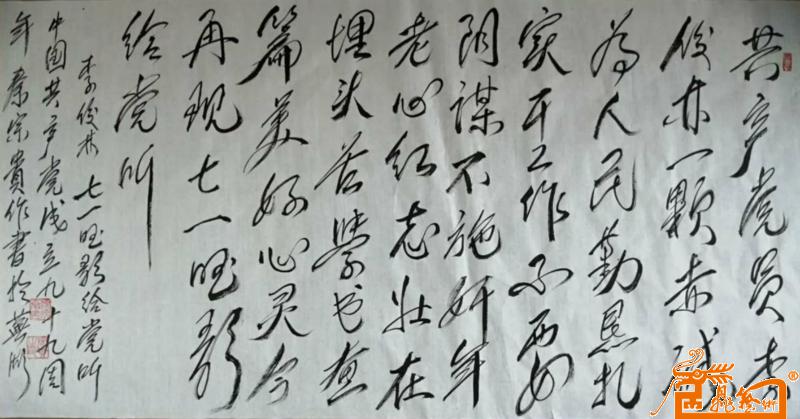 共产党员李
俊林一颗赤诚
为人民勤恳扎
实干工作不要
阴谋不施奸年
老心红志壮在
埋头苦學书画
篇美好心灵今
再现七一唱歌
给党听
李俊林 七一唱歌给党听
中国共产党成立九十九周
年秦宗貴作書於